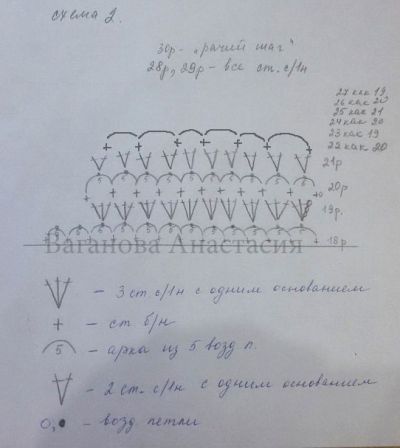 схема 2.
30р - "рачий шаг"
28р, 29р - все ст. с/1н
27 как 19
26 как 20
25 как 21
24 как 20
23 как 19
22 как 20
21р
20р
19р.
18р
Ваганова Анастасия
- 3 ст. с/1н с одним основанием
+ - ст б/н
5 - арка из 5 возд п.
- 2 ст. с/1н с одним основанием
0, • - возд петли